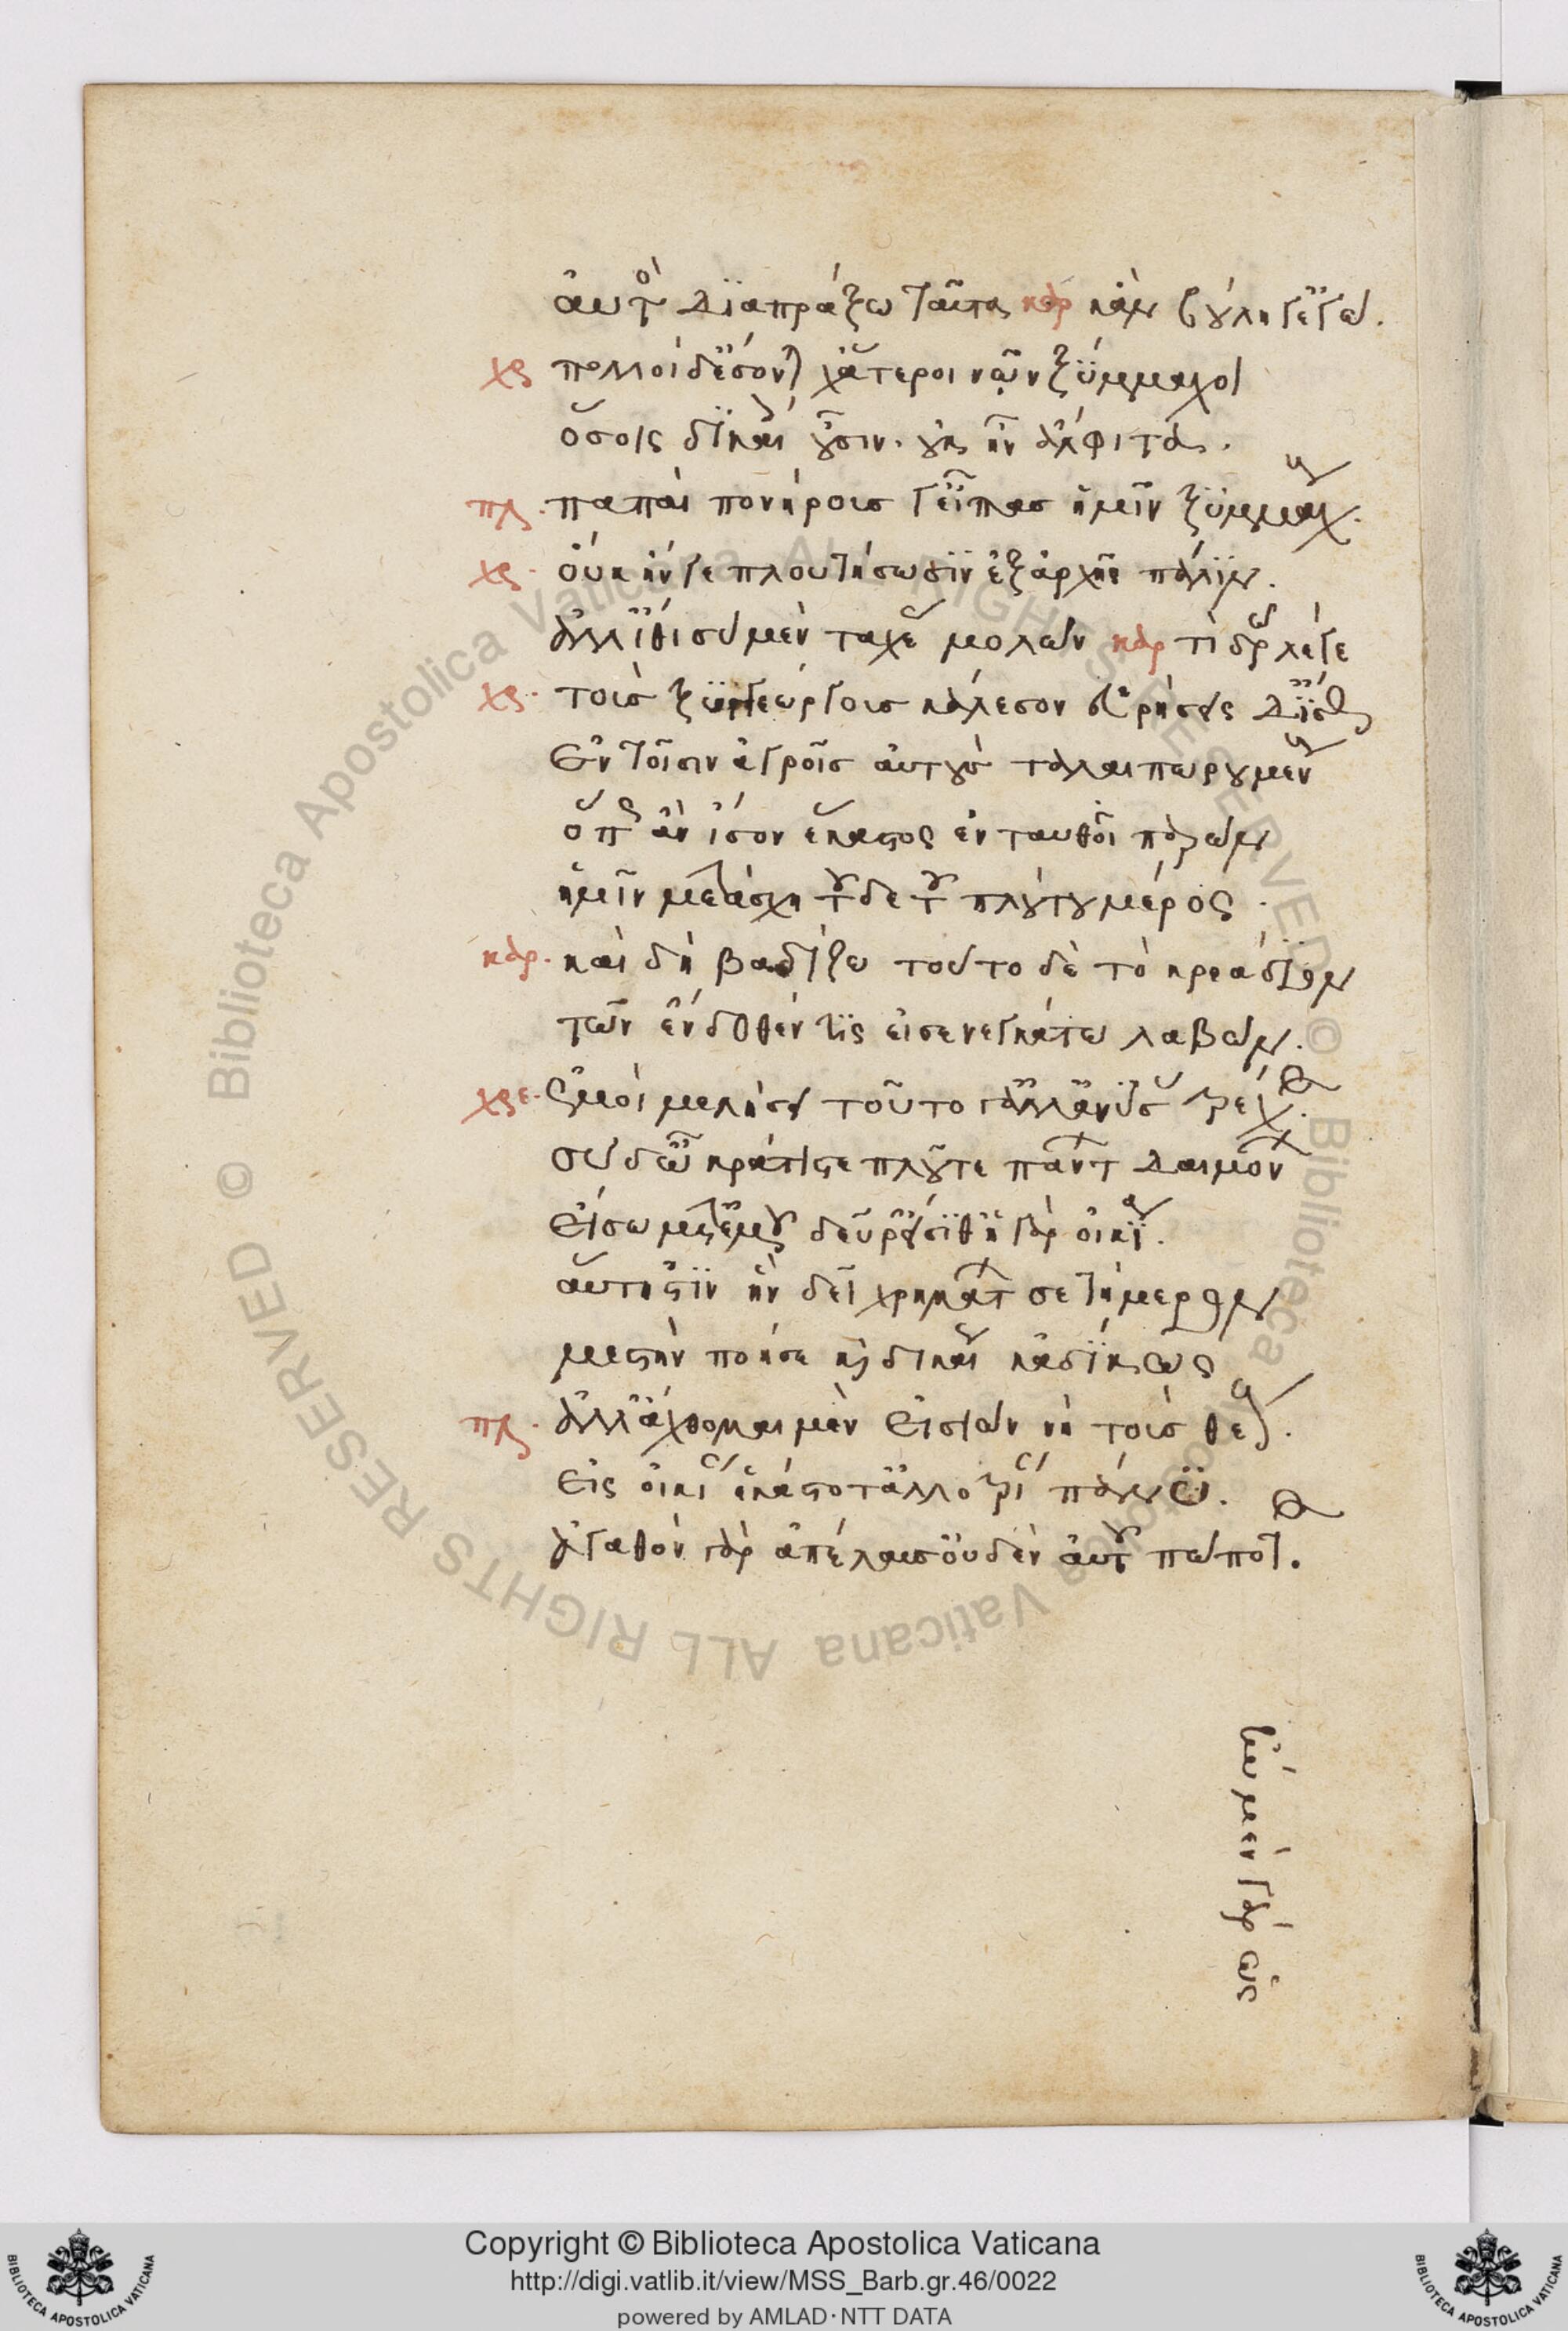 αὐτὸς διαπράξω ταῦτα καρ κἂν βούλῃ γ' ἐγώ.
χρ πολλοὶ δ' ἔσονται χἄτεροι νῷν ξύμμαχοι
ὅσοις δικαίοις οὖσιν. οὐκ ἦν ἄλφιτα.
πλ. παπαὶ πονηρούς γ' εἶπας ἡμῖν ξυμμάχους.
χρ. οὐκ ἤν γε πλουτήσωσιν ἐξ ἀρχῆς πάλιν.
ἀλλ' ἴθι σὺ μὲν ταχέως μολὼν καρ τί δρῶ λέγε
χρ. τοὺς ξυγγεώργους κάλεσον εὑρήσεις δ' ἴσως
ἐν τοῖσιν ἀγροῖς αὐτοὺς ταλαιπωρουμένους
ὅπως ἂν ἴσον ἕκαστος ἐνταυθοῖ παρὼν
ἡμῖν μετάσχῃ τοῦδε τοῦ πλούτου μέρος.
καρ. καὶ δὴ βαδίζω τουτοδὲ τὸ κρεάδιον
τῶν ἔνδοθέν τις εἰσενεγκάτω λαβών.
χρε. ἐμοὶ μελήσει τοῦτό γ' ἀλλ' ἀνύσας τρέχε.
σὺ δ' ὦ κράτιστε πλοῦτε πάντων δαιμόνων
εἴσω μετ' ἐμοῦ δεῦρ' εἴσιθ' ἡ γὰρ οἰκία.
αὕτη 'στὶν ἣν δεῖ χρημάτων σε τήμερον
μεστὴν ποῆσαι καὶ δικαίως κἀδίκως
πλ. ἀλλ' ἄχθομαι μὲν εἰσιὼν νὴ τοὺς θεούς.
εἰς οἰκίαν ἑκάστοτ' ἀλλοτρίαν πάνυ.
ἀγαθὸν γὰρ ἀπέλαυσ' οὐδὲν αὐτοῦ πώποτε.
ἢν μὲν γὰρ ὡς